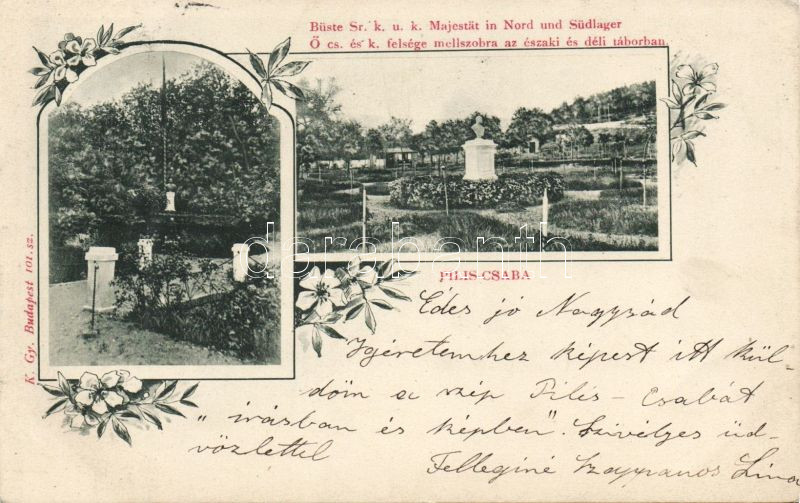 Büste Sr. k. u. k. Majestät in Nord und Südlager
Ő cs. és k. felsége mellszobra az északi és déli táborban
darabanth
PILIS-CSABA
K. Gy. Budapest 101. sz.
Édes jó Nagysád
Igéretemhez képest itt kül-
döm a szép Pilis-Csabát
"irásban és képben". Szivélyes üd-
vözlettel
Felleginé Szappanos Lina